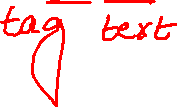 tag text